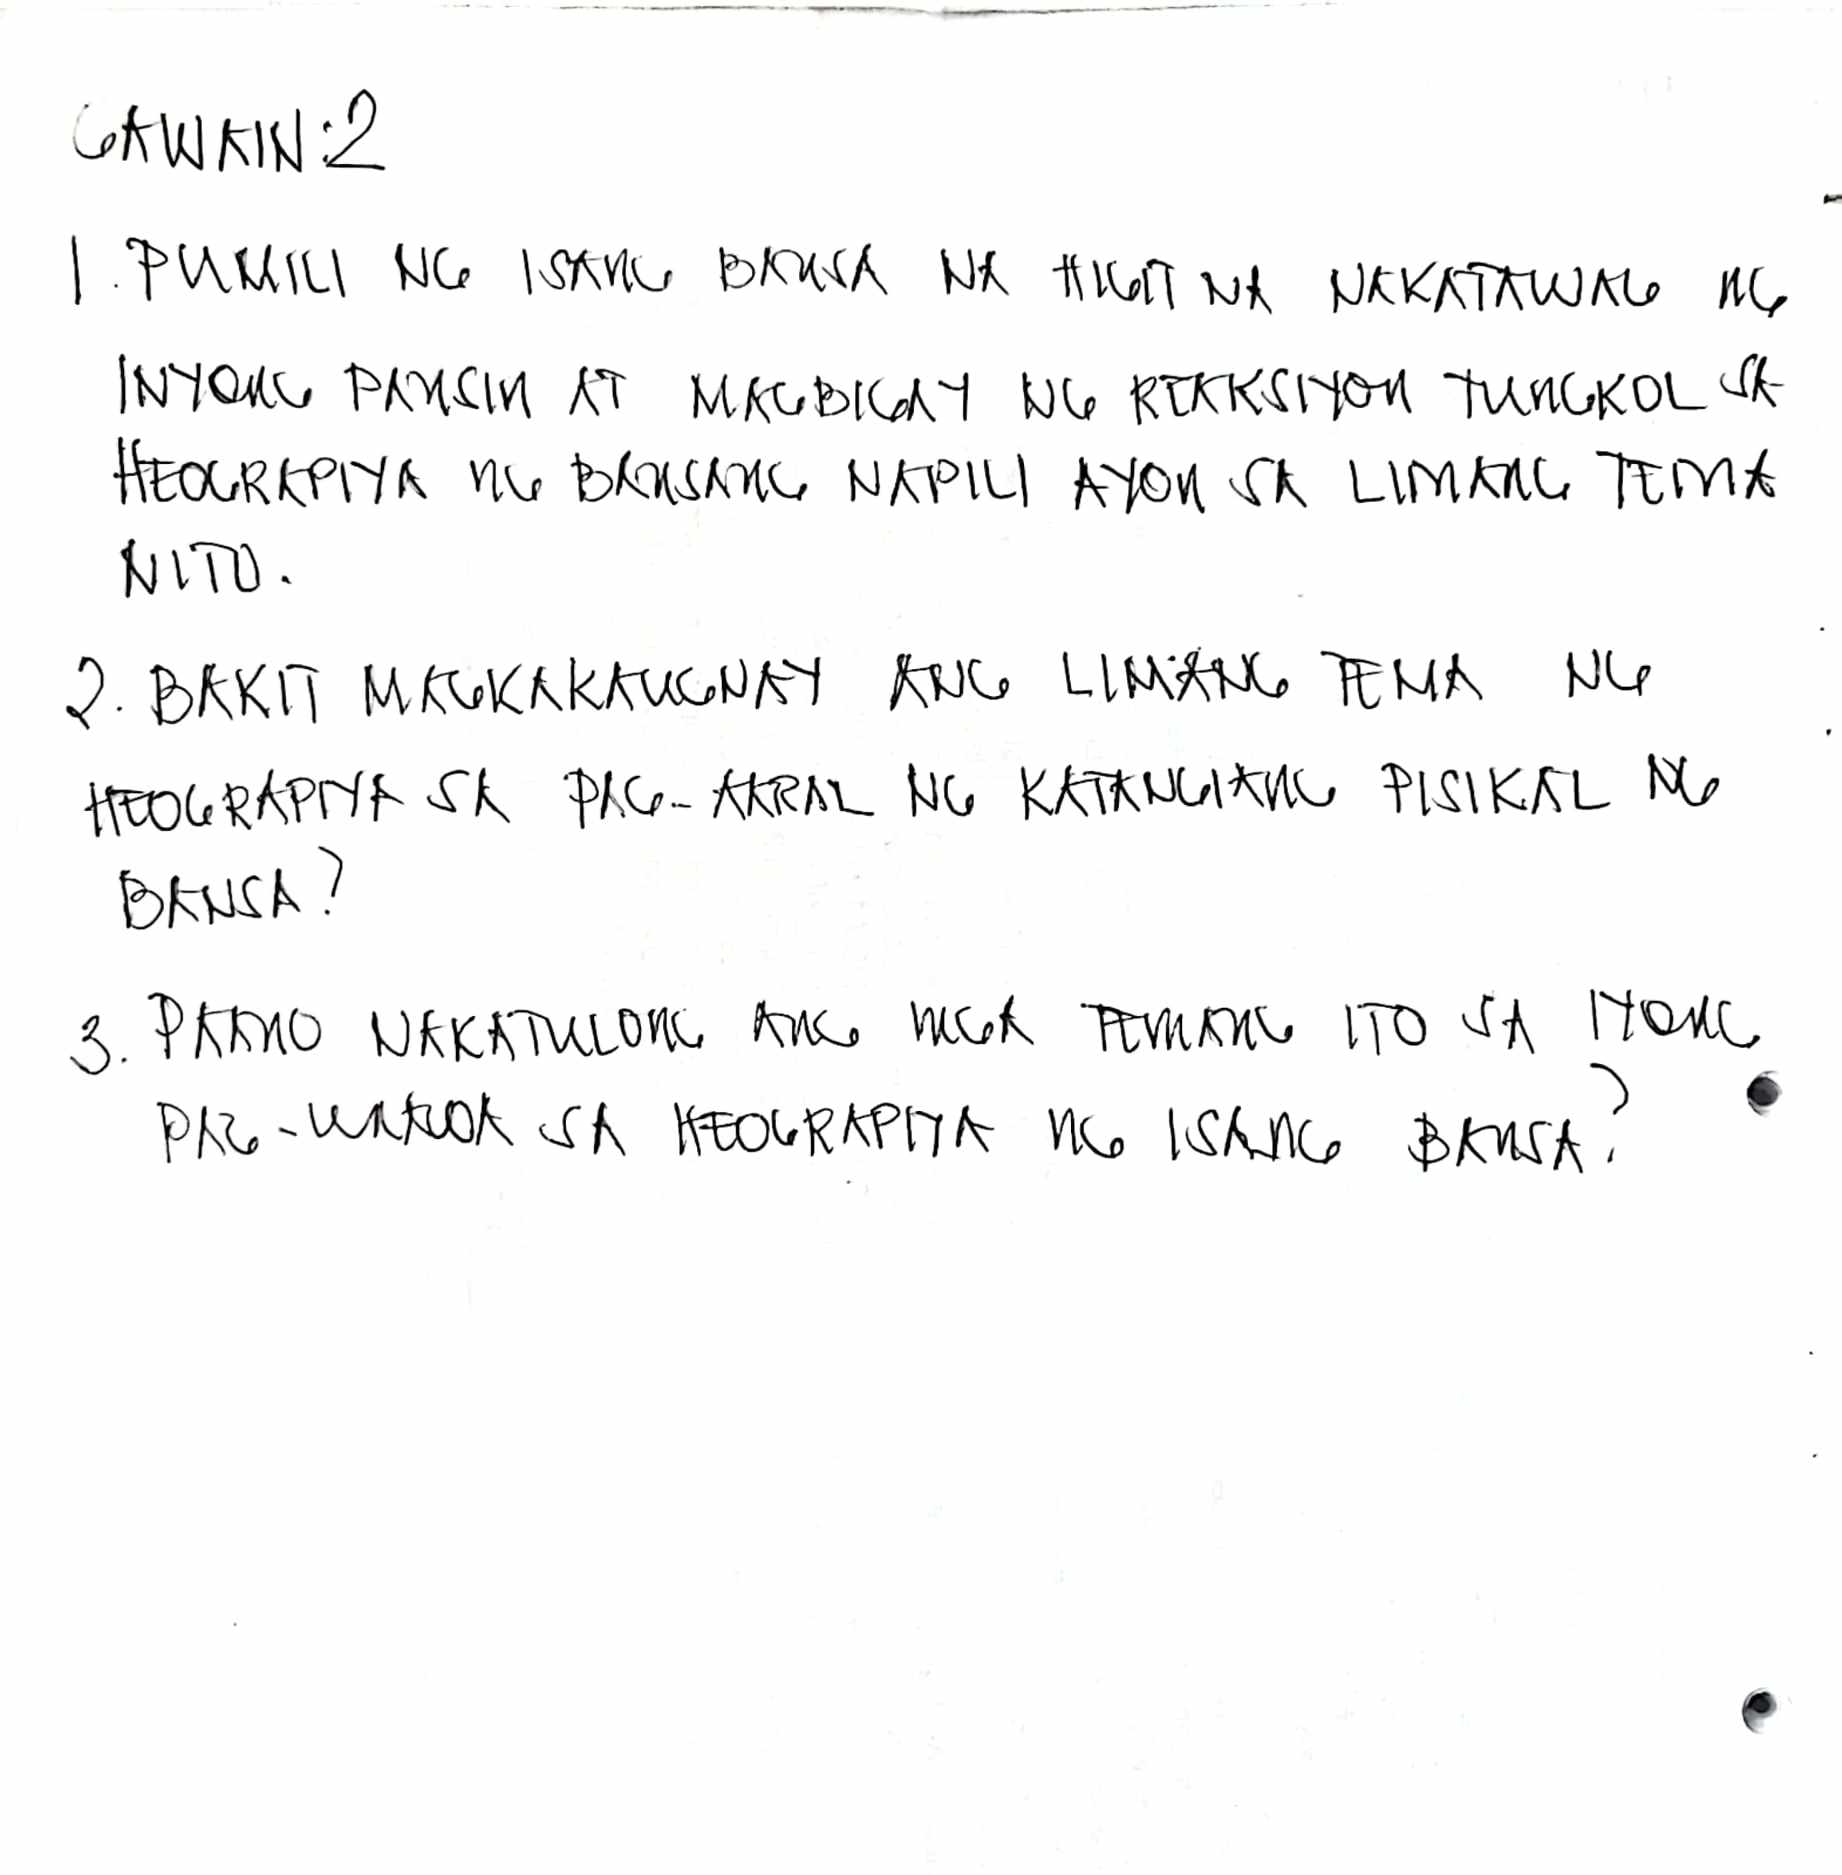 GAWAIN:2
1. PUMILI NG ISANG BANSA NA HIGIT NA NAKATAWAG NG
INYONG PANSIN AT MAGBIGAY NG REAKSIYON TUNGKOL SA
HEOGRAPIYA NG BANSANG NAPILI AYON SA LIMANG TEMA
NITO.
2. BAKIT MAGKAKAUGNAY ANG LIMANG TEMA NG
HEOGRAPIYA SA PAG-AARAL NG KATANGIANG PISIKAL NG
BANSA?
3. PAANO NAKATULONG ANG MGA TEMANG ITO SA IYONG
PAG-UNAWA SA HEOGRAPIYA NG ISANG BANSA?